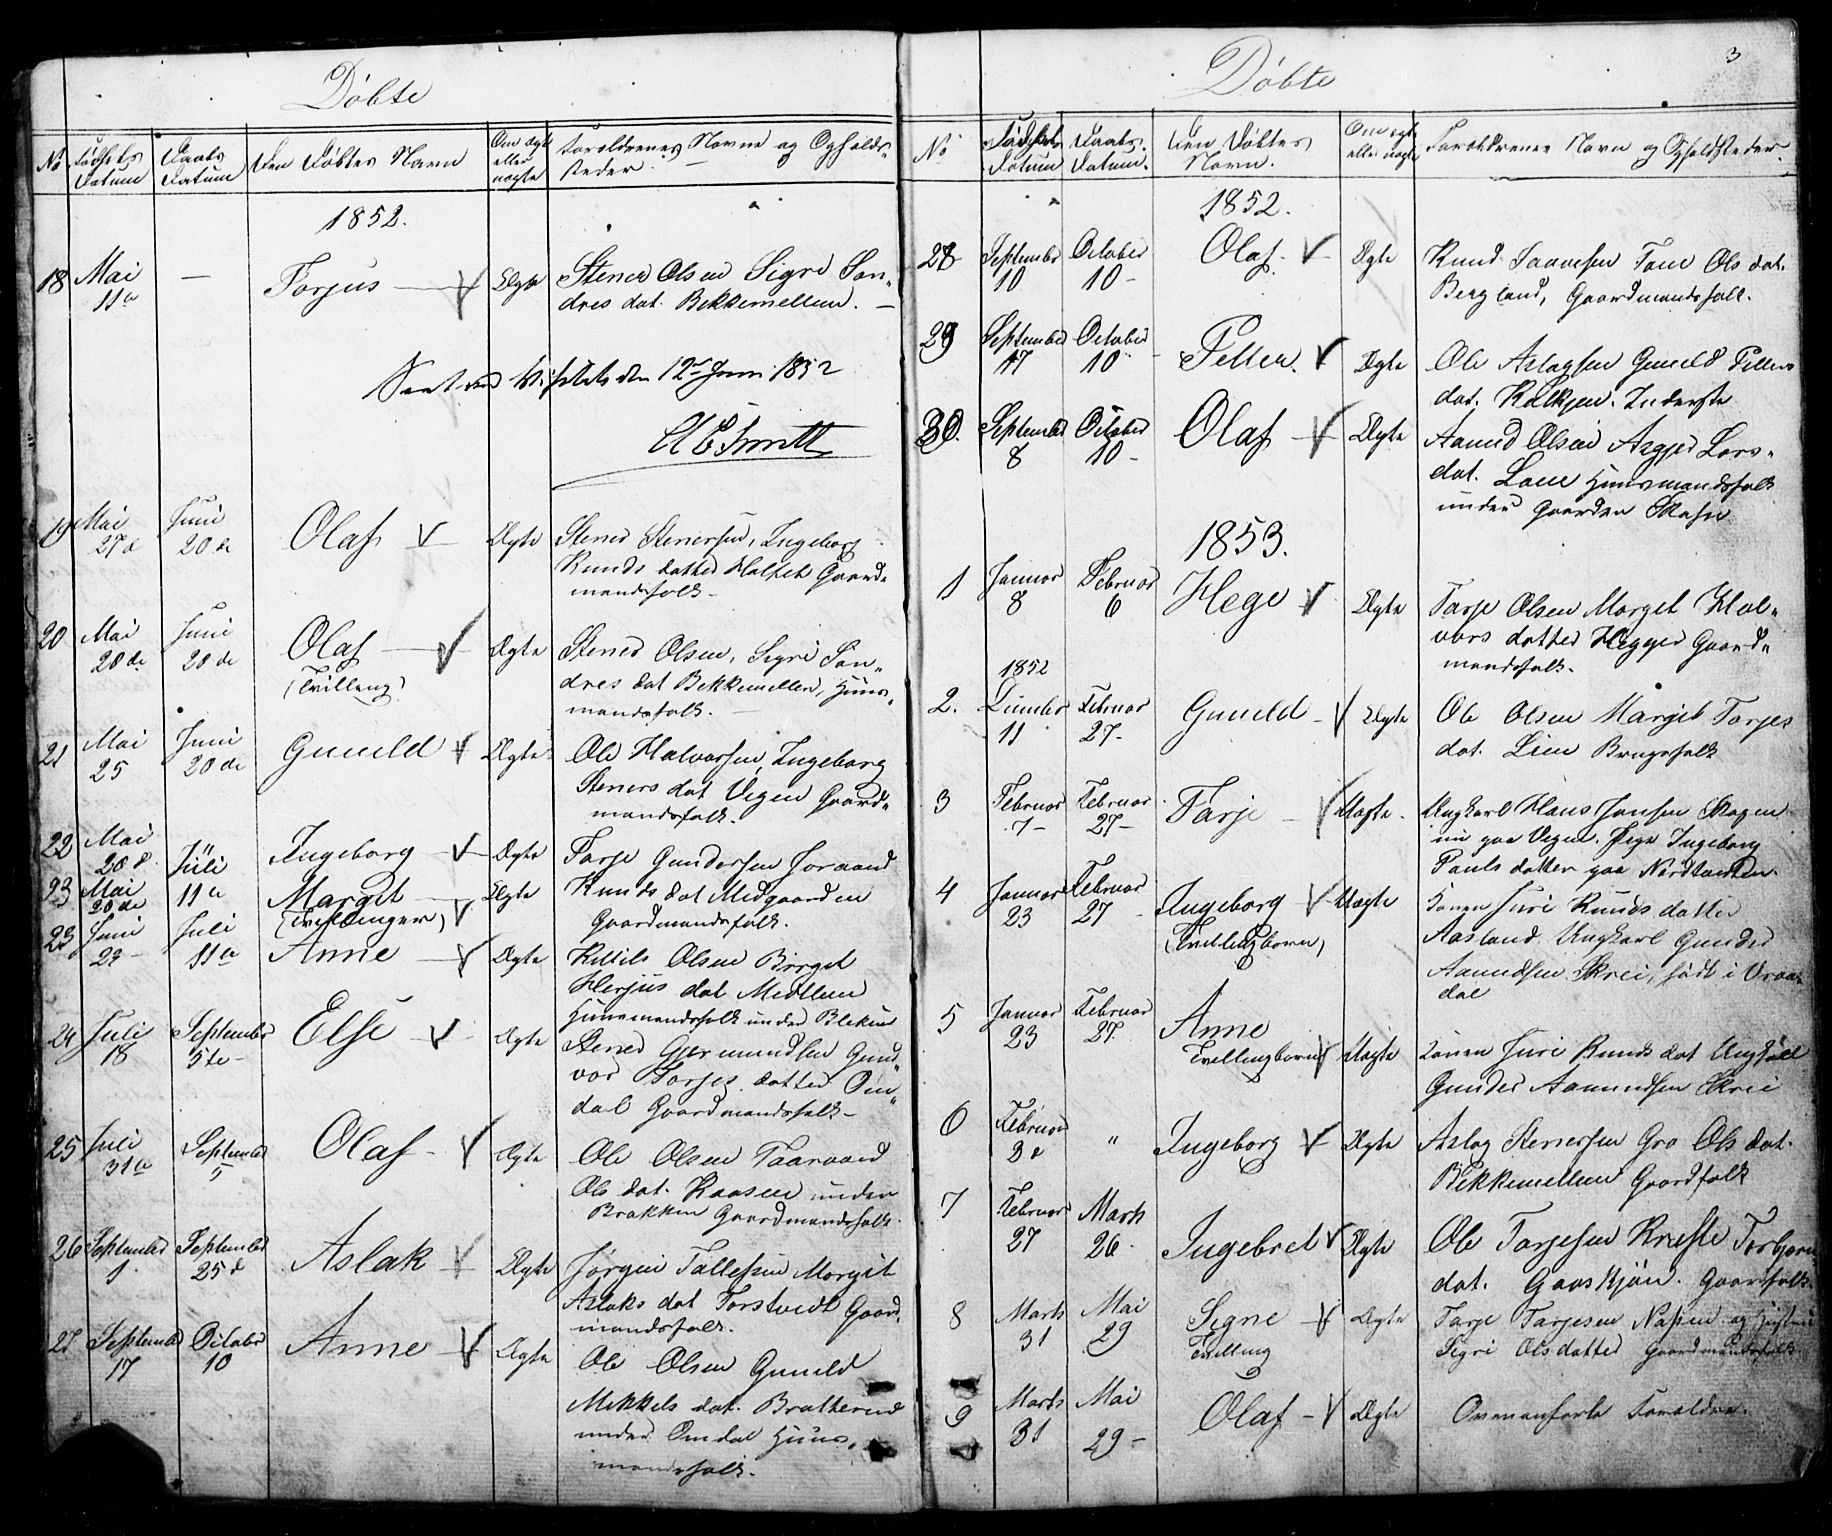 Döbte
No Födsels Datum Daabs Datum Den Döbtes Navn Om ægte eller uægte Forældrenes Navne og Opholdssteder.
1852.
18 Mai 11te — Torjus Ægte Stener Olsen Sigri Sondres dat. Bekkemellem. —
Seet ved Visitats den 12te Juni 1852
19 Mai 27de Juni 20de Olaf Ægte Stener Stenersen, Ingeborg
Knuds datter Holtet Gaardmandsfolk
20 Mai 28de Juni 20de Olaf Ægte Stener Olsen, Sigri Son-
(Tvilling) dres dat Bekkemellem, Huus-
mandsfolk. —
21 Mai 25 Juni 20de Gunild Ægte Ole Halvorsen, Ingeborg
Steners dat Vegen Gaard-
mandsfolk.
22 Mai 20de Juli Ingeborg Ægte Tarje Gundersen Joraand
23 Mai 20de 11te Margit Ægte Knuds dat Midgaarden
(Tvillinger) Gaardmandsfolk.
23 Juni 23 Juli 11te Anne Ægte Kittil Olsen Birgit
Herjus dat Mellem
Huusmandsfolk under
24 Juli 18 September 5te Else Ægte Stener Gjermundsen Gun-
vor Torjes datter Om-
dal Gaardmandsfolk —
25 Juli 31te September 5 Olaf Ægte Ole Olsen Taaraand
Ols dat. Kaasen under
Brakken Gaardmandsfolk.
26 September 1 September 25de Aslak Ægte Jörgen Tallefsen Morgit
Aslaks dat Torstvedt Gaard-
mandsfolk.
27 September 17 October 10 Anne Ægte Ole Olsen Gunild
Mikkels dat. Bratterud
under Omdal Huus-
mandsfolk.
3
Döbte
No Födsels Datum Daabs Datum. Den Döbtes Navn. Om ægte eller uægte Forældrenes Navn og Opholdsteder.
1852.
28 September 10 October 10 — Olaf. Ægte Knud Saavesen Tone Ols dat.
Bergland, Gaardmandsfolk.
29 September 17 October 10 Petter. Ægte Ole Aslagsen Gunild Petters
dat. Kalkjen. Inderste
30. September 8 October 10 — Olaf Ægte Aamund Olsen Asgjer Lars-
dat. Huusmandsfolk
under Gaarden
1853.
1 Januar 8 Februar 6 Hege Ægte Tarje Olsen Morget Hal-
vors datter Heggjer Gaard-
mandsfolk.
1852
2. December 11 Februar 27 — Gunild Ægte Ole Olsen Margit Tarjes
dat. Lien Brugsfolk
3 Februar 7 — Februar 27 — Tarje Uægte. Ungkarl Hans Jansen Skogen
nu paa Vegen. Pige Ingeborg
Pouls datter paa
4 Januar 23 Februar 27 Ingeborg Uægte Konen Juri Knuds datter
(Tvillingbörn) Aasland. Ungkarl Gunder
Aamundsen Skrei, födt i Vraa-
dal
5 Januar 23 Februar 27. Anne Uægte Konen Juri Knuds dat Ungkarl
Tvillingbörn Gunder Aamundsen Skrei
6 Februar 3de " Ingeborg Ægte Aslag Stenersen Gro Ols dat.
Bekkemellem Gaardfolk
7 Februar 27 Marts 26 — Ingebret Ægte Ole Tarjesen Torbjörn
dat. Gaaskjön. Gaardfolk
8 Marts 31 Mai 29 Signe Ægte Tarje Tarjesen og Hustrue
Tvilling Sigri Olsdatter Gaardmandsfolk
9 Marts 31 Mai 29 — Olaf Ægte Ovenanförte Forældre.